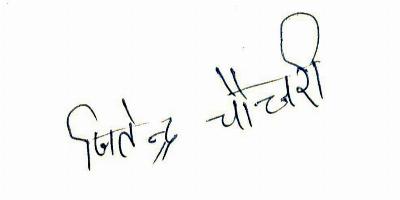 जितेन्द्र चौधरी